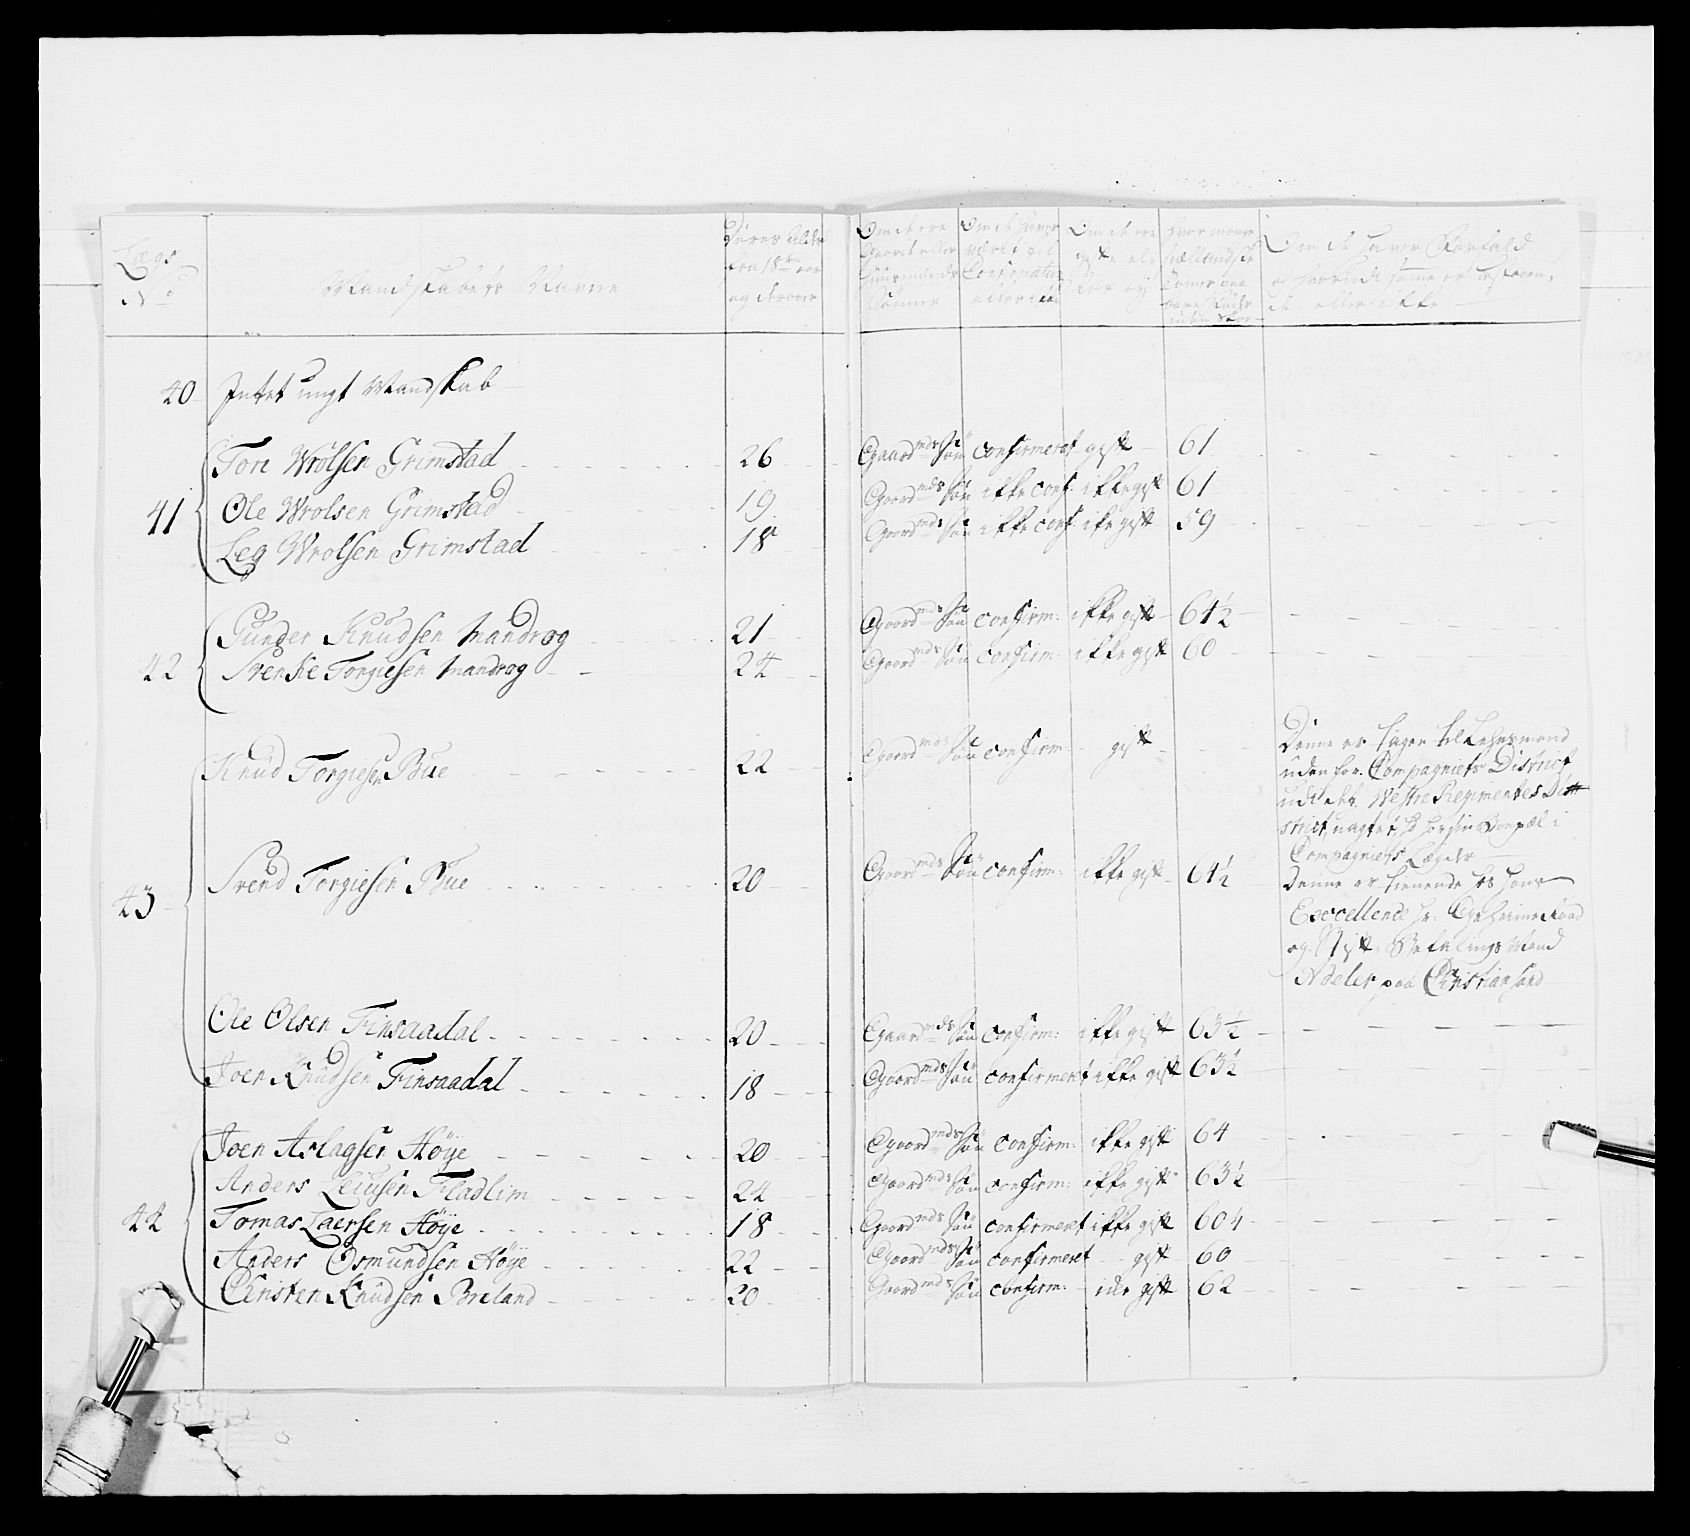 Lægs No
Mandskabets Navne
Deres Alder fra 18ten aar og derover
Om de ere Gaard eller Huusmænds Sönner
Om de haver været til Confirmation eller ikke
Om de ere gifte eller ey
Om de haver Forfald
40 Intet ungt Mandskab
41
Tore Wrolsen Grimstad 26 Gaardmds Sön confirmeret gift 61
Ole Wrolsen Grimstad 19 Gaardmds Sön ikke conf: ikke gift 61
Leg Wrolsen Grimstad 18 Gaardmds Sön ikke conf: ike gift 59
42
Gunder Knudsen Mandrog 21 Gaardmds Sön confirm: ikke gift 64½
Svenke Torgiesen Mandrog 24 Gaardmds Sön confirm ikke gift 60
43
Knud Torgiesen Bue 22 Gaardmds Sön confirm: gift
Denne er tagen til Lehnsmand
uden for Compagniets District
udi det Westre Regimentes Di
strict, uagtet
Compagniets Lægder
Svend Torgiesen Bue 20 Gaardmds Sön confirm: ikke gift 64½
Denne er tienende hos hans
Exccellence hr: Geheime Raad
og Stift Befalings Mand
Adeler paa Christiansand
Ole Olsen Finsaadal 20 Gaardmds Sön confirm: ikke gift 63½
Joen Knudsen Finsaadal 18 Gaardmds Sön confirmeret ikke gift 63½
44
Joen Aslagsen Höÿe 20 Gaardmds Sön confirm: ikke gift 64
Anders Leiusen Fladlim 24 Gaardmds Sön confirm: ikke gift 63½
Tomas Laersen Höÿe 18 Gaardmds Sön confirmeret ikke gift 60¼
Anders Osmundsen Höÿe 22 Gaardmds Sön confirmeret gift 60
Christen Knudsen Breland 20 Gaardmds Sön confirm: ikke gift 62